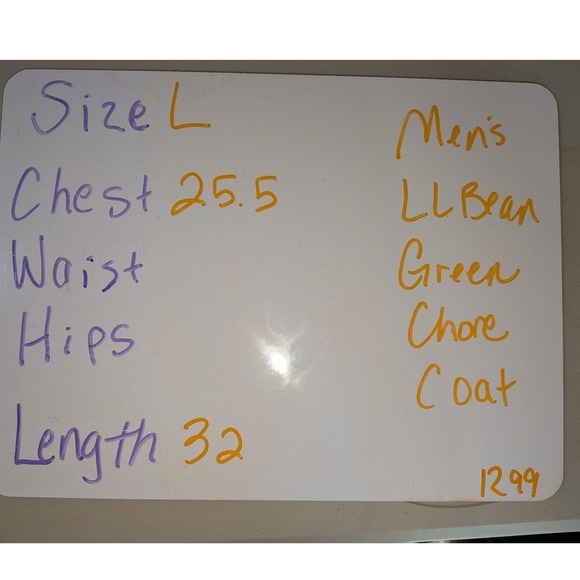 Size L
Chest 25.5
Waist
Hips
Length 32
Men's
LL Bean
Green
Chore
Coat
1299